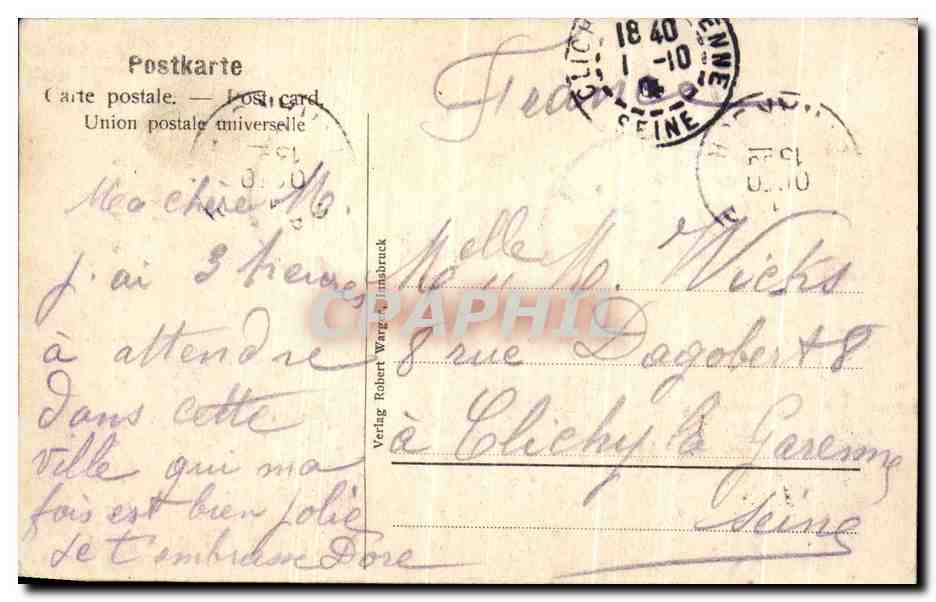 Postkarte
Carte postale. — Post card.
Union postale universelle
Ma chère M.
j'ai 3 heures
à attendre
dans cette
ville qui ma
fois est bien jolie
Je t'embrasse Dore
Verlag Robert Warger, Innsbruck
France
18 40
1 -10
SEINE
Melle M. Wicks
8 rue Dagobert 8
à Clichy la Garenne
Seine
CPAPHIL